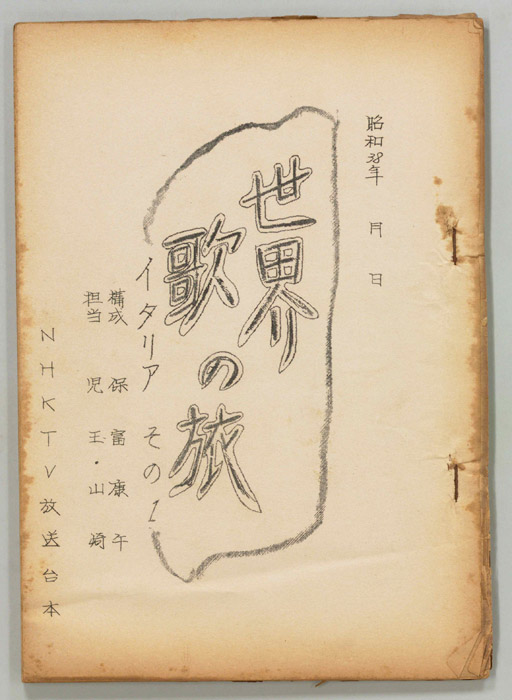 昭和38年 月 日
世界
歌の旅
イタリア その1
構成 保富康午
担当 児玉・山崎
NHKTV放送台本